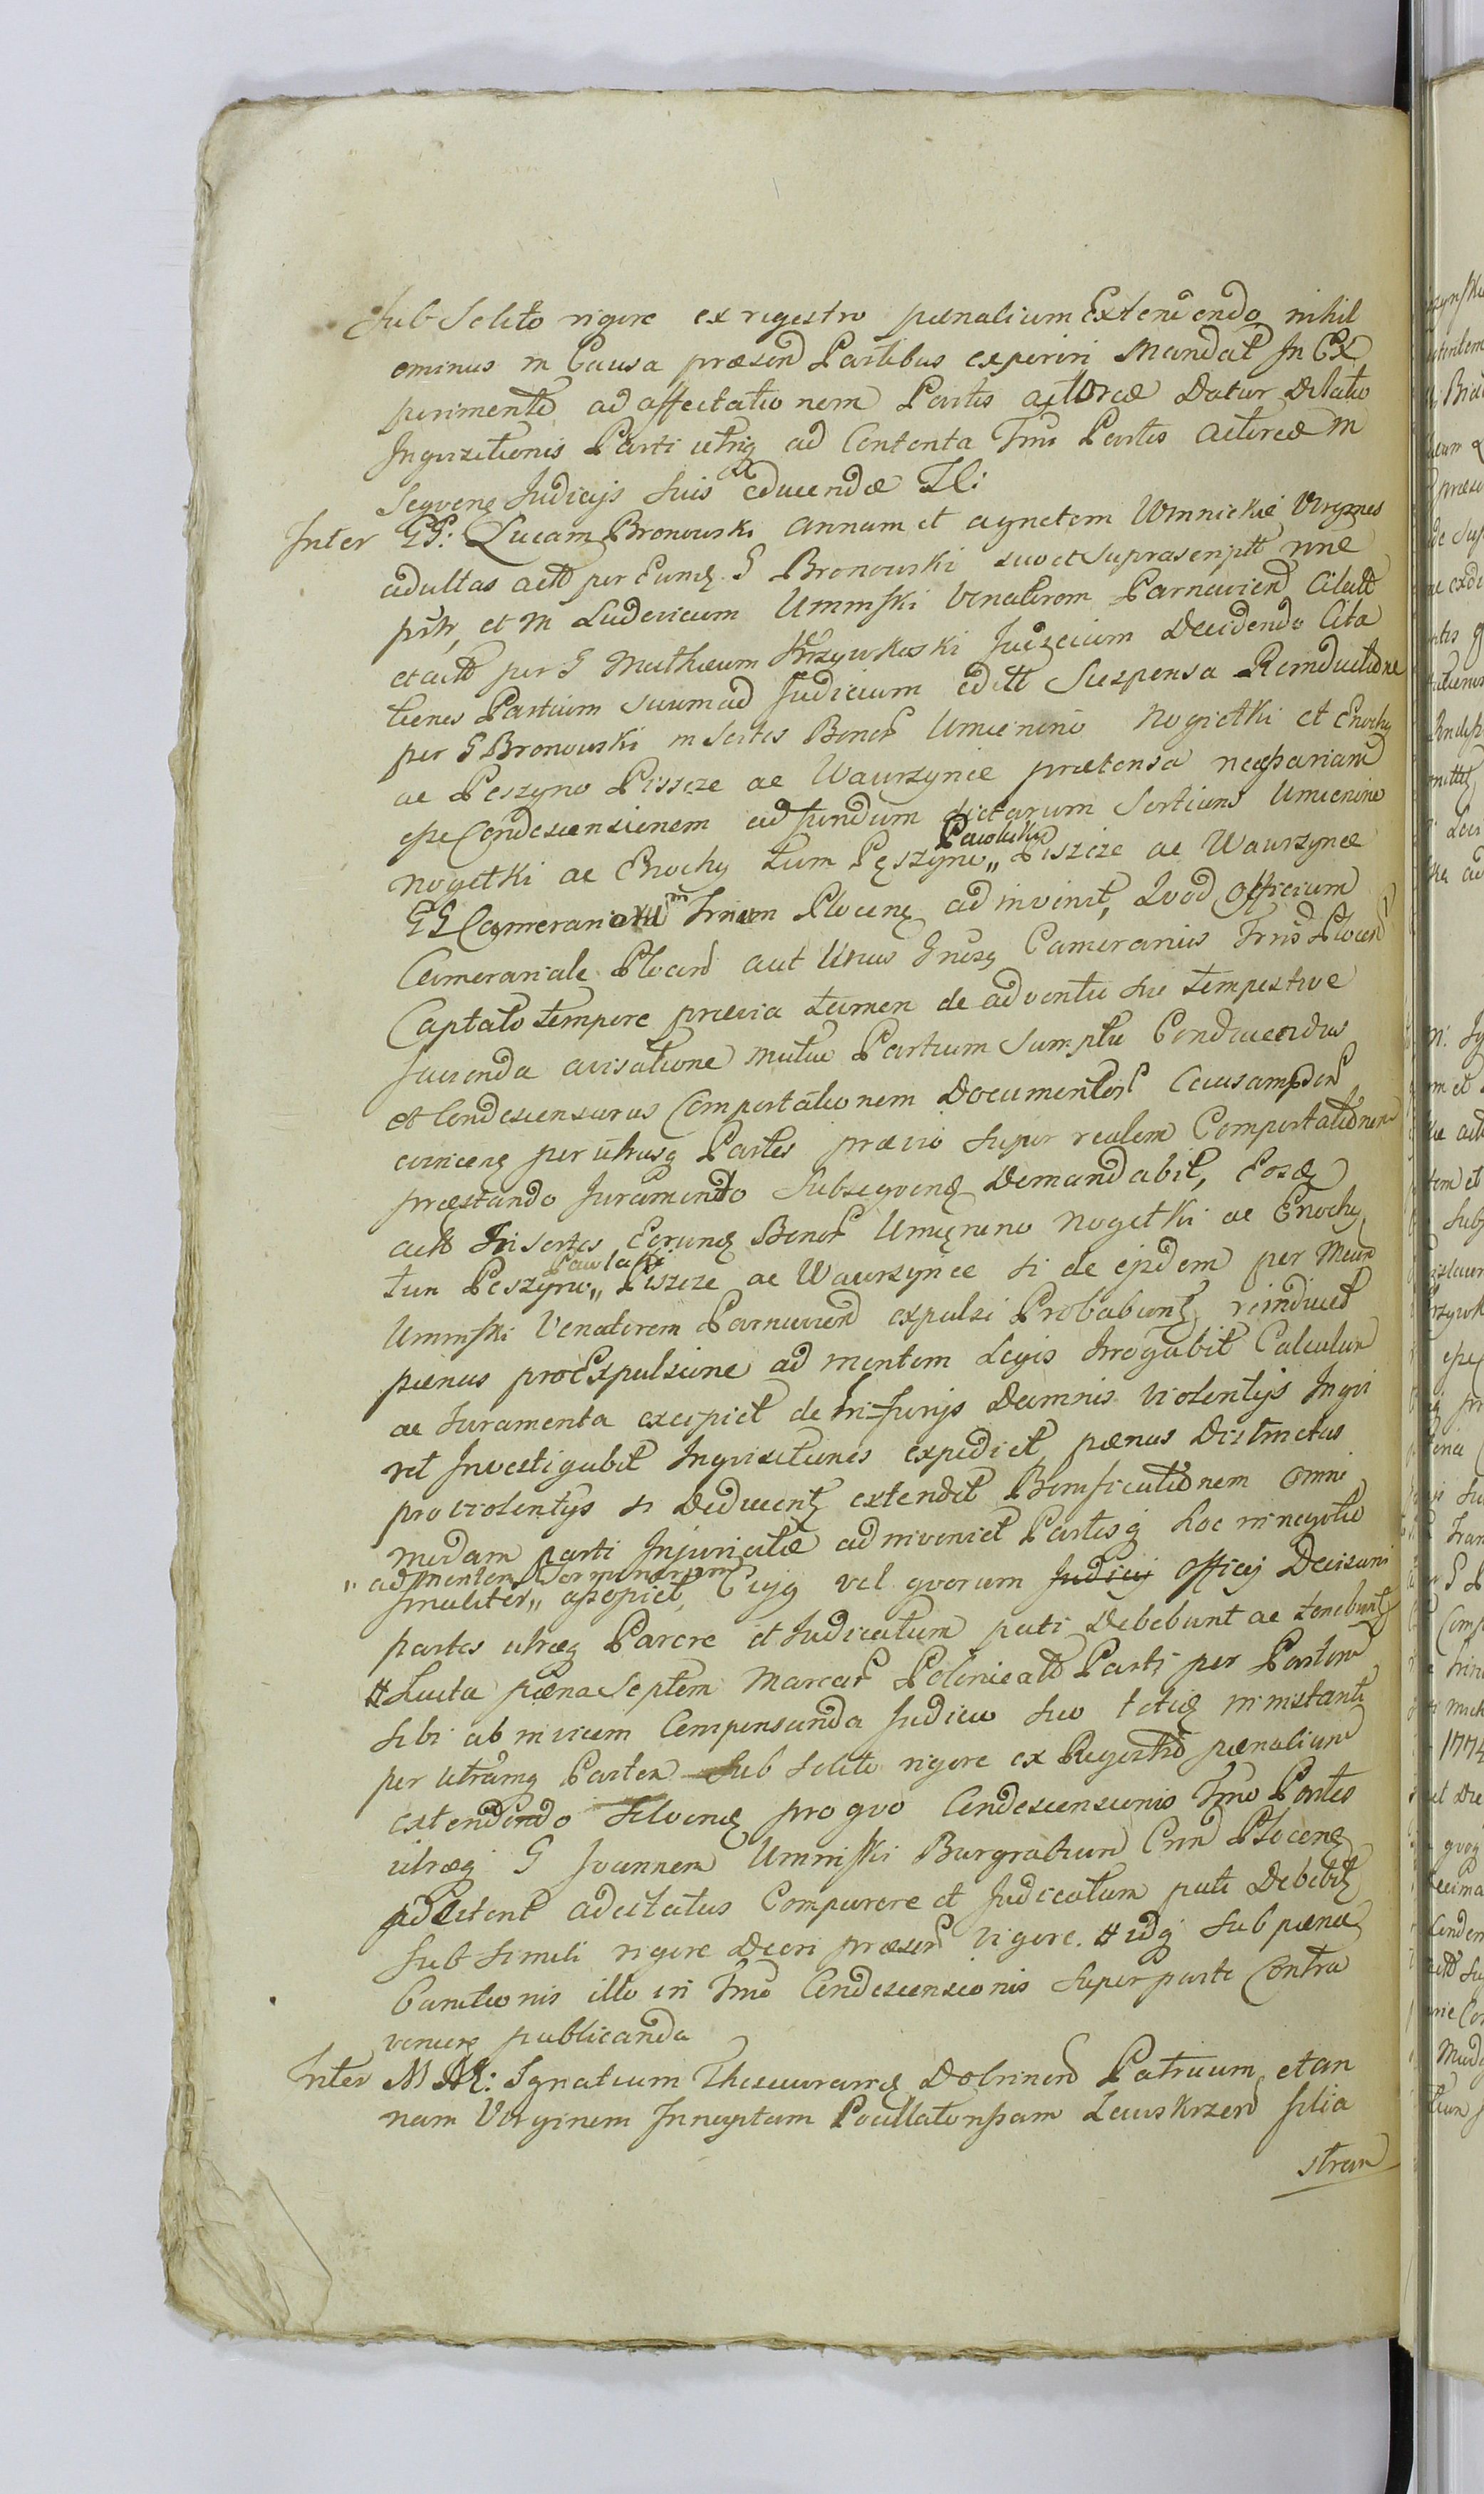 Sub Solito rigore ex regestro pænalium Extendendo nihil
ominus in Causa præsen Partibus experiri Mandat In Ex
perimento ad affectationem Partis actoreæ Datur Dilatio
Inqvisitionis Parti utriq ad Contenta Tmi Partis actoreæ in
Seqvenę Judicijs suis educendæ
Inter GG: Lucam Bronowski annam et agnetem Umnickie Virgines
adultas actt per Eumę G Bronowski suo et Suprascriptt nne
et M Ludovicum Uminski Venatorem Parnavien Citatt
et actt per G Matheum Krzywkoski Judicium Decidendo Cita
tiones Partium suum ad Judicium editt Suspensa Reinductione
per G Bronowski in Sortes Bonor Umienino Nogietki et Enochy
ac Peszyno Pisscze ac Wawrzynce prætensa necessariam
esse Condescensionem ad fundum dictarum Sortium Umienino
Nogetki ac Enochy tum Peszyno,, Piszcze ac Wawrzynce
Pawlaki
GG Camerariorum Trium Plocenę adinvenit, Qvod Officium
Camerariale Plocen aut Unus Camerarius Trris Plocen
Captato tempore prævia tamen de adventu suo tempestive
facienda avisatione mutuo Partium Sumptu Conducendus
et Condescensurus Comportationem Documentor Causam
per utrasq Partes prævio super realem Comportationem
præstando Juramento Subseqvenę Demandabit, Eosdę
actt In Sortes Eorumę Bonor Umienino Nogetki ac Enochy
tum Peszyno,, Piszcze ac Wawrzynce si de ejsdem per
Pawlaki
Uminski Venatorem Parnavien expulsi Probabuntę reinducet
pænas pro Expulsione ad mentem Legis Irrogabit Calculum
ac Juramenta excipiet de Injurijs Damnis Violentijs Inqvi
ret Investigabit Inqvisitiones expediet pænas Distinctas
pro violentijs si Deducentę extendet Bonificationem omni
modam parti Injuriatæ adinveniet Partesq hoc in negotio
,, ad mentem Terminorum
finaliter,, Cujq vel qvorum Judicij officij Decisioni
partes utræq Parere et Judicatum pati Debebunt ac tenebuntę
# Lucta pæna Septem Marcar Polonicalt Parti per Partem
sibi ab invicem Compensanda Judicio suo in instanti
per Utramq Partem Sub Solito rigore ex Regestro pænalium
extendendo Solvenę pro qvo Condescensionis Tmo Partes
utræq G Joannem Uminski Burgrabium Plocenę
adcitatus Comparere et Judicatum pati Debebitę
sub simili rigore Decri præsen vigore. # idq sub pæna
banitionis illo in Tmo Condescensionis Super parte Contra
veniere publicanda
Inter M M: Ignatium Thesaurarię Dobrinen Patruum et an
nam Virginem Innuptam Pocillatorissam filia
stram